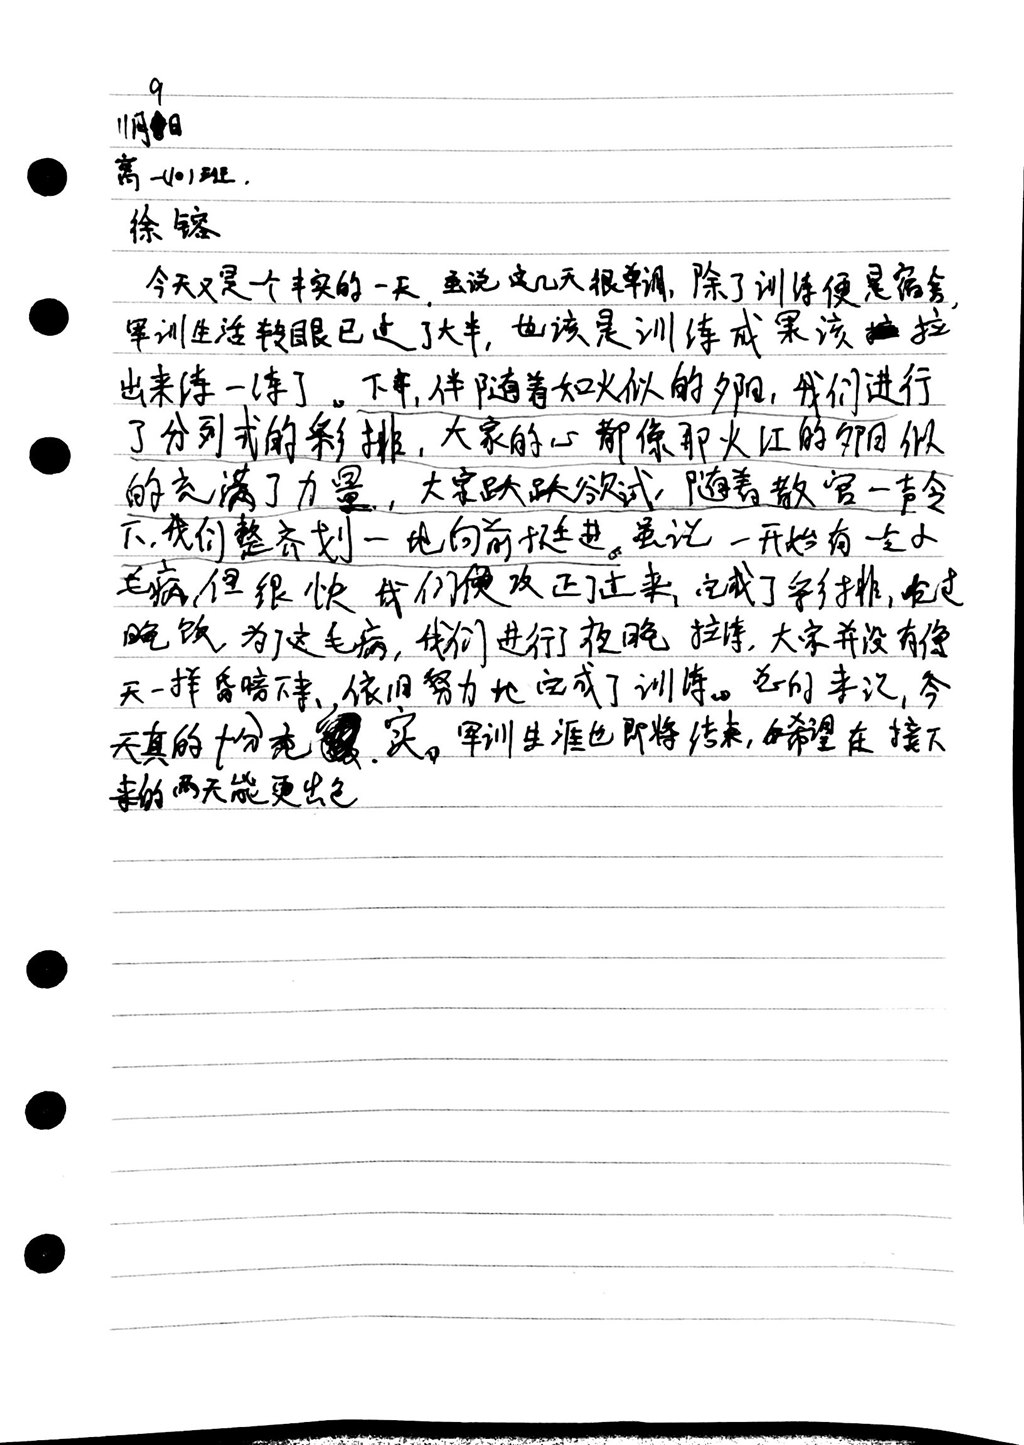 9
11月日
高一(10)班.
徐镕
今天又是一个丰实的一天.虽说这几天很单调,除了训练便是宿舍,
军训生活转眼已过了大半,也该是训练成果该拉
出来练一练了。下午,伴随着如火似的夕阳,我们进行
了分列式的彩排,大家的心都像那火红的夕阳似
的充满了力量,大家跃跃欲试,随着教官一声令
下,我们整齐划一地向前挺进。虽说一开始有一些小
毛病,但很快我们便改正了过来,完成了彩排,吃过
晚饭,为了这毛病,我们进行了夜晚拉练,大家并没有像
天一样昏暗下来,依旧努力地完成了训练。总的来说,今
天真的十分充实。军训生涯也即将结束,希望在接下
来的两天能更出色